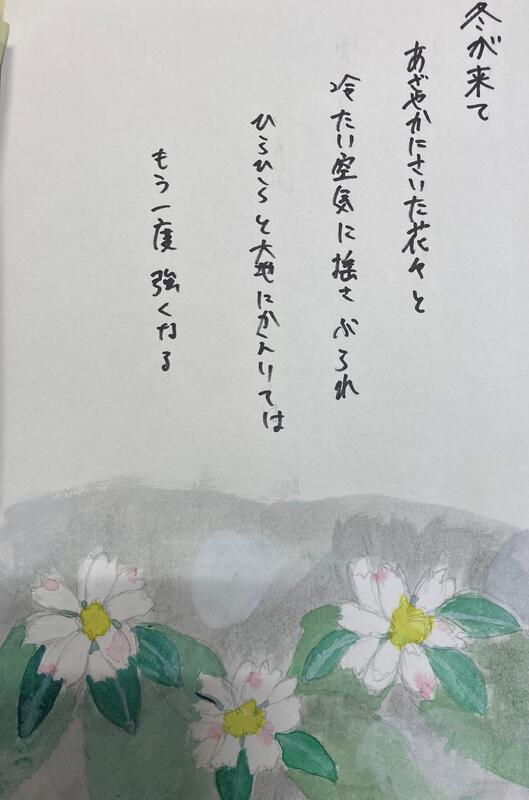 冬が来て
あざやかにさいた花々と
冷たい空気に揺さぶられ
ひらひらと大地にかえりては
もう一度強くなる